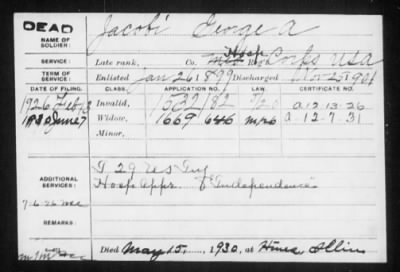 DEAD
NAME OF SOLDIER: Jacobi George A
SERVICE: Late rank, Co. Reg't Hosp Corps USA
TERM OF SERVICE: Enlisted Jan 26 1899 Discharged Nov 25 1901
DATE OF FILING. CLASS. APPLICATION NO. LAW. CERTIFICATE NO.
1926 Feb 13 Invalid, 1532182 a-12-13-26
1930 June 7 Widow, 1669646 a-12-7-31
Minor,
ADDITIONAL SERVICES: D 29
Hosp Appr Independence
7-6-26
REMARKS:
Died May 15, 1930, at Hines, Illin